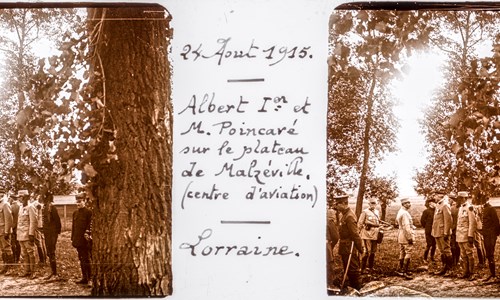 24 Aout 1915.
Albert Ier et
M. Poincaré
sur le plateau
de Malzéville.
(centre d'aviation)
Lorraine.